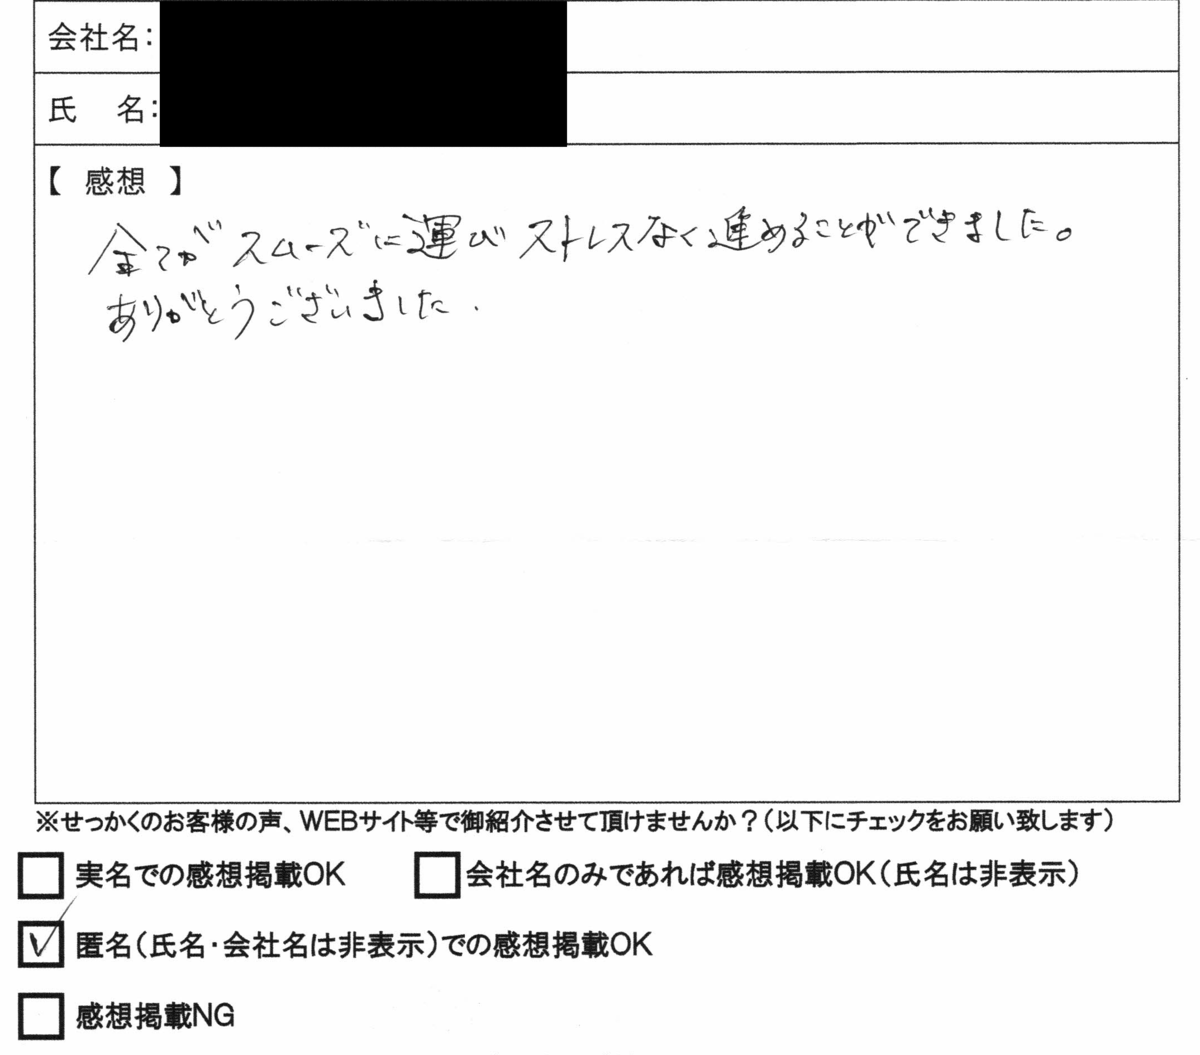 会社名:
氏 名:
【 感想 】
全てがスムーズに運びストレスなく進めることができました。
ありがとうございました.
※せっかくのお客様の声、WEBサイト等で御紹介させて頂けませんか?(以下にチェックをお願い致します)
実名での感想掲載OK 会社名のみであれば感想掲載OK(氏名は非表示)
匿名(氏名・会社名は非表示)での感想掲載OK
感想掲載NG